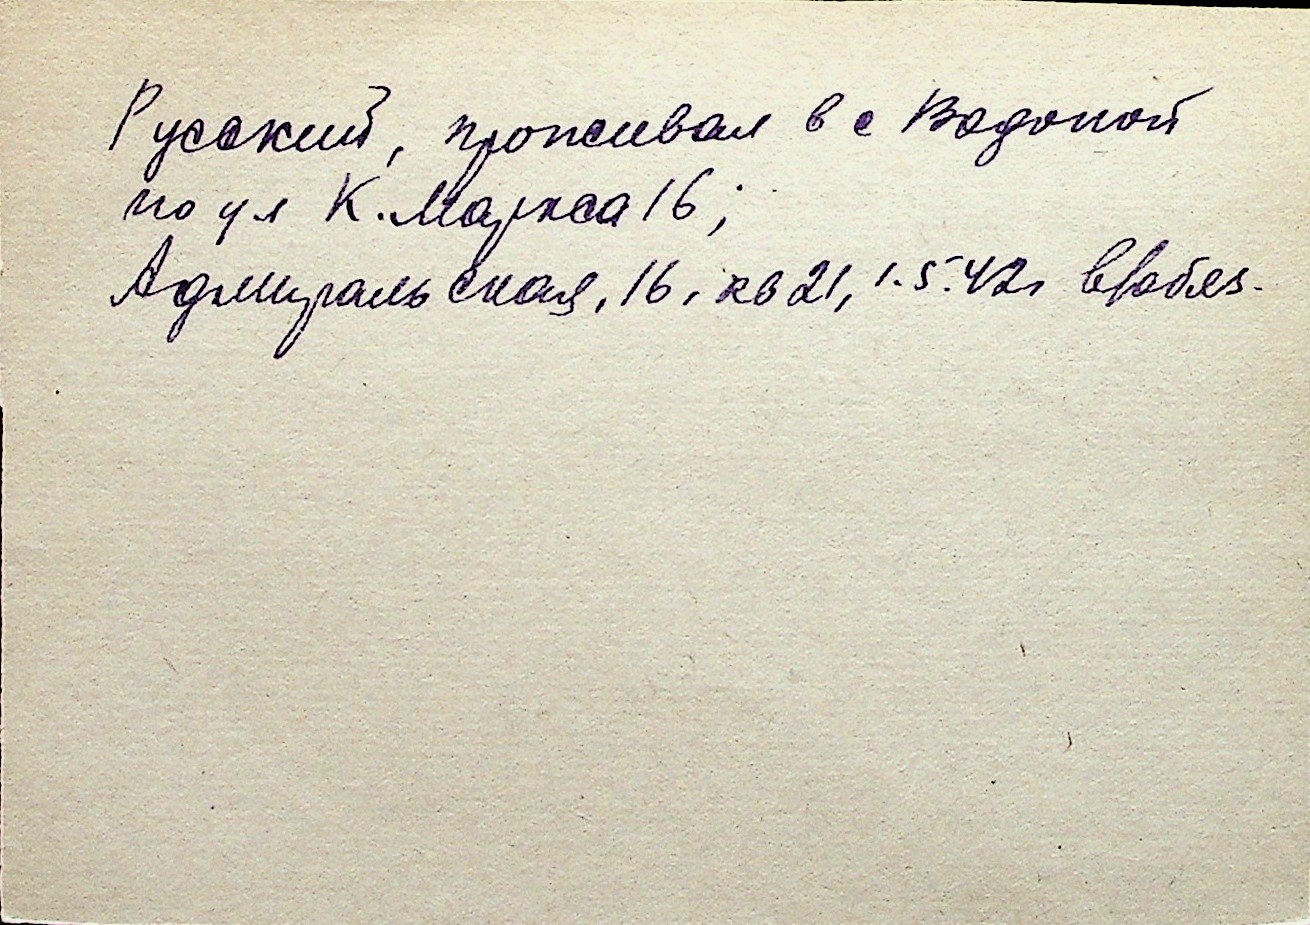 Русский, проживал в с Водопой
по ул К. Маркса 16;
Адмиральская, 16, кв 21, 1.5.42г